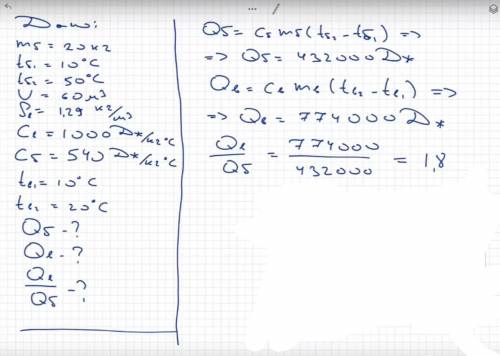 Дано:
mб = 20 кг
tб₁ = 10°C
tб₂ = 50°C
V = 60 м³
ρв = 1,29 кг/м³
Cв = 1000 Дж/кг°C
Cб = 540 Дж/кг°C
tв₁ = 10°C
tв₂ = 20°C
Qб - ?
Qв - ?
Qв/Qб - ?
Qб = Cб mб (tб₂ - tб₁) =>
=> Qб = 432000 Дж
Qв = Cв mв (tв₂ - tв₁) =>
=> Qв = 774000 Дж
Qв/Qб = 774000/432000 = 1,8